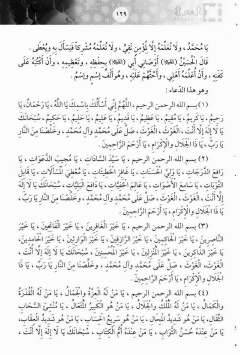 ١٢٩
يَا مُحَمَّدُ ، وَلَا تُعَلِّمْهُ إِلَّا لِمُؤْمِنٍ تَقِيٍّ ، وَلَا تُعَلِّمْهُ مُشْرِكًا فَيَسْأَلَ بِهِ وَيُعْطَى .
قَالَ الْحُسَيْنُ : أَوْصَانِي أَبِي بِحِفْظِهِ ، وَتَعْظِيمِهِ ، وَأَنْ أَكْتُبَهُ عَلَى
كَفَنِهِ ، وَأَنْ أُعَلِّمَهُ أَهْلِي ، وَأَحُثَّهُمْ عَلَيْهِ ، وَهُوَ أَلْفُ اسْمٍ وَاسْمٌ .
وهو هذا الدعاء :
(١) بسم الله الرحمن الرحيم ، اللَّهُمَّ إِنِّي أَسْأَلُكَ بِاسْمِكَ يَا اللَّهُ ، يَا رَحْمَانُ ، يَا
رَحِيمُ ، يَا كَرِيمُ ، يَا مُقِيمُ ، يَا عَظِيمُ ، يَا قَدِيمُ ، يَا عَلِيمُ ، يَا حَلِيمُ ، يَا حَكِيمُ ، سُبْحَانَكَ
يَا لَا إِلَهَ إِلَّا أَنْتَ ، الْغَوْثَ ، الْغَوْثَ ، صَلِّ عَلَى مُحَمَّدٍ وَآلِ مُحَمَّدٍ ، وَخَلِّصْنَا مِنَ النَّارِ
يَا رَبِّ ، يَا ذَا الْجَلَالِ وَالْإِكْرَامِ ، يَا أَرْحَمَ الرَّاحِمِينَ .
(٢) بسم الله الرحمن الرحيم ، يَا سَيِّدَ السَّادَاتِ ، يَا مُجِيبَ الدَّعَوَاتِ ، يَا
رَافِعَ الدَّرَجَاتِ ، يَا وَلِيَّ الْحَسَنَاتِ ، يَا غَافِرَ الْخَطِيئَاتِ ، يَا مُعْطِيَ الْمَسْأَلَاتِ ، يَا قَابِلَ
التَّوْبَاتِ ، يَا سَامِعَ الْأَصْوَاتِ ، يَا عَالِمَ الْخَفِيَّاتِ ، يَا دَافِعَ الْبَلِيَّاتِ ، سُبْحَانَكَ يَا لَا إِلَهَ
إِلَّا أَنْتَ ، الْغَوْثَ ، الْغَوْثَ ، صَلِّ عَلَى مُحَمَّدٍ وَآلِ مُحَمَّدٍ ، وَخَلِّصْنَا مِنَ النَّارِ يَا رَبِّ ، يَا
ذَا الْجَلَالِ وَالْإِكْرَامِ ، يَا أَرْحَمَ الرَّاحِمِينَ .
(٣) بسم الله الرحمن الرحيم ، يَا خَيْرَ الْغَافِرِينَ ، يَا خَيْرَ الْفَاتِحِينَ ، يَا خَيْرَ
النَّاصِرِينَ ، يَا خَيْرَ الْحَاكِمِينَ ، يَا خَيْرَ الرَّازِقِينَ ، يَا خَيْرَ الْوَارِثِينَ ، يَا خَيْرَ الْحَامِدِينَ ،
يَا خَيْرَ الذَّاكِرِينَ ، يَا خَيْرَ الْمُنْزِلِينَ ، يَا خَيْرَ الْمُحْسِنِينَ ، سُبْحَانَكَ يَا لَا إِلَهَ إِلَّا أَنْتَ ،
الْغَوْثَ ، الْغَوْثَ ، صَلِّ عَلَى مُحَمَّدٍ وَآلِ مُحَمَّدٍ ، وَخَلِّصْنَا مِنَ النَّارِ يَا رَبِّ ، يَا ذَا
الْجَلَالِ وَالْإِكْرَامِ ، يَا أَرْحَمَ الرَّاحِمِينَ .
(٤) بسم الله الرحمن الرحيم ، يَا مَنْ لَهُ الْعِزَّةُ وَالْجَمَالُ ، يَا مَنْ لَهُ الْقُدْرَةُ
وَالْكَمَالُ ، يَا مَنْ لَهُ الْمُلْكُ وَالْجَلَالُ ، يَا مَنْ هُوَ الْكَبِيرُ الْمُتَعَالُ ، يَا مُنْشِئَ السَّحَابِ
الثِّقَالِ ، يَا مَنْ هُوَ شَدِيدُ الْمِحَالِ ، يَا مَنْ هُوَ سَرِيعُ الْحِسَابِ ، يَا مَنْ هُوَ شَدِيدُ الْعِقَابِ ،
يَا مَنْ عِنْدَهُ حُسْنُ الثَّوَابِ ، يَا مَنْ عِنْدَهُ أُمُّ الْكِتَابِ ، سُبْحَانَكَ يَا لَا إِلَهَ إِلَّا أَنْتَ ،